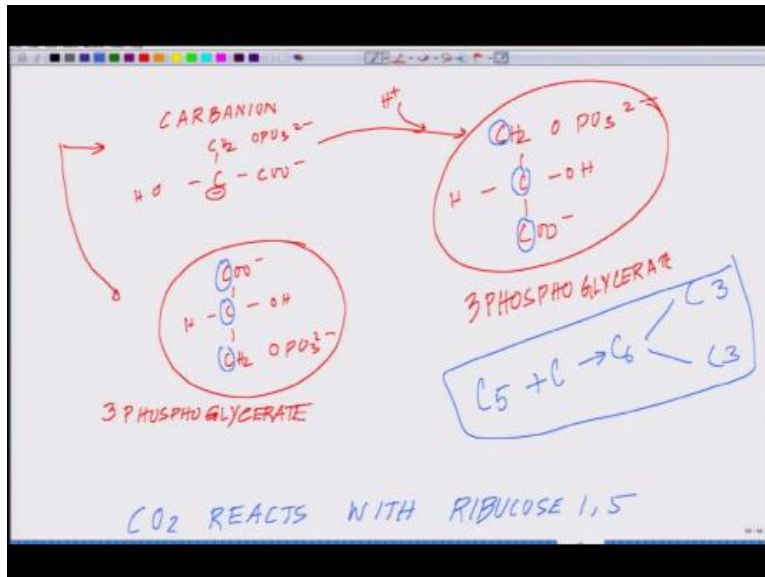 CARBANION
CH2 OPO3 2-
HO - C - COO-
H+
CH2 O PO3 2-
H - C - OH
COO-
3 PHOSPHO GLYCERATE
COO-
H - C - OH
CH2 OPO3 2-
3 PHOSPHO GLYCERATE
C5 + C → C6
C3
C3
CO2 REACTS WITH RIBULOSE 1,5